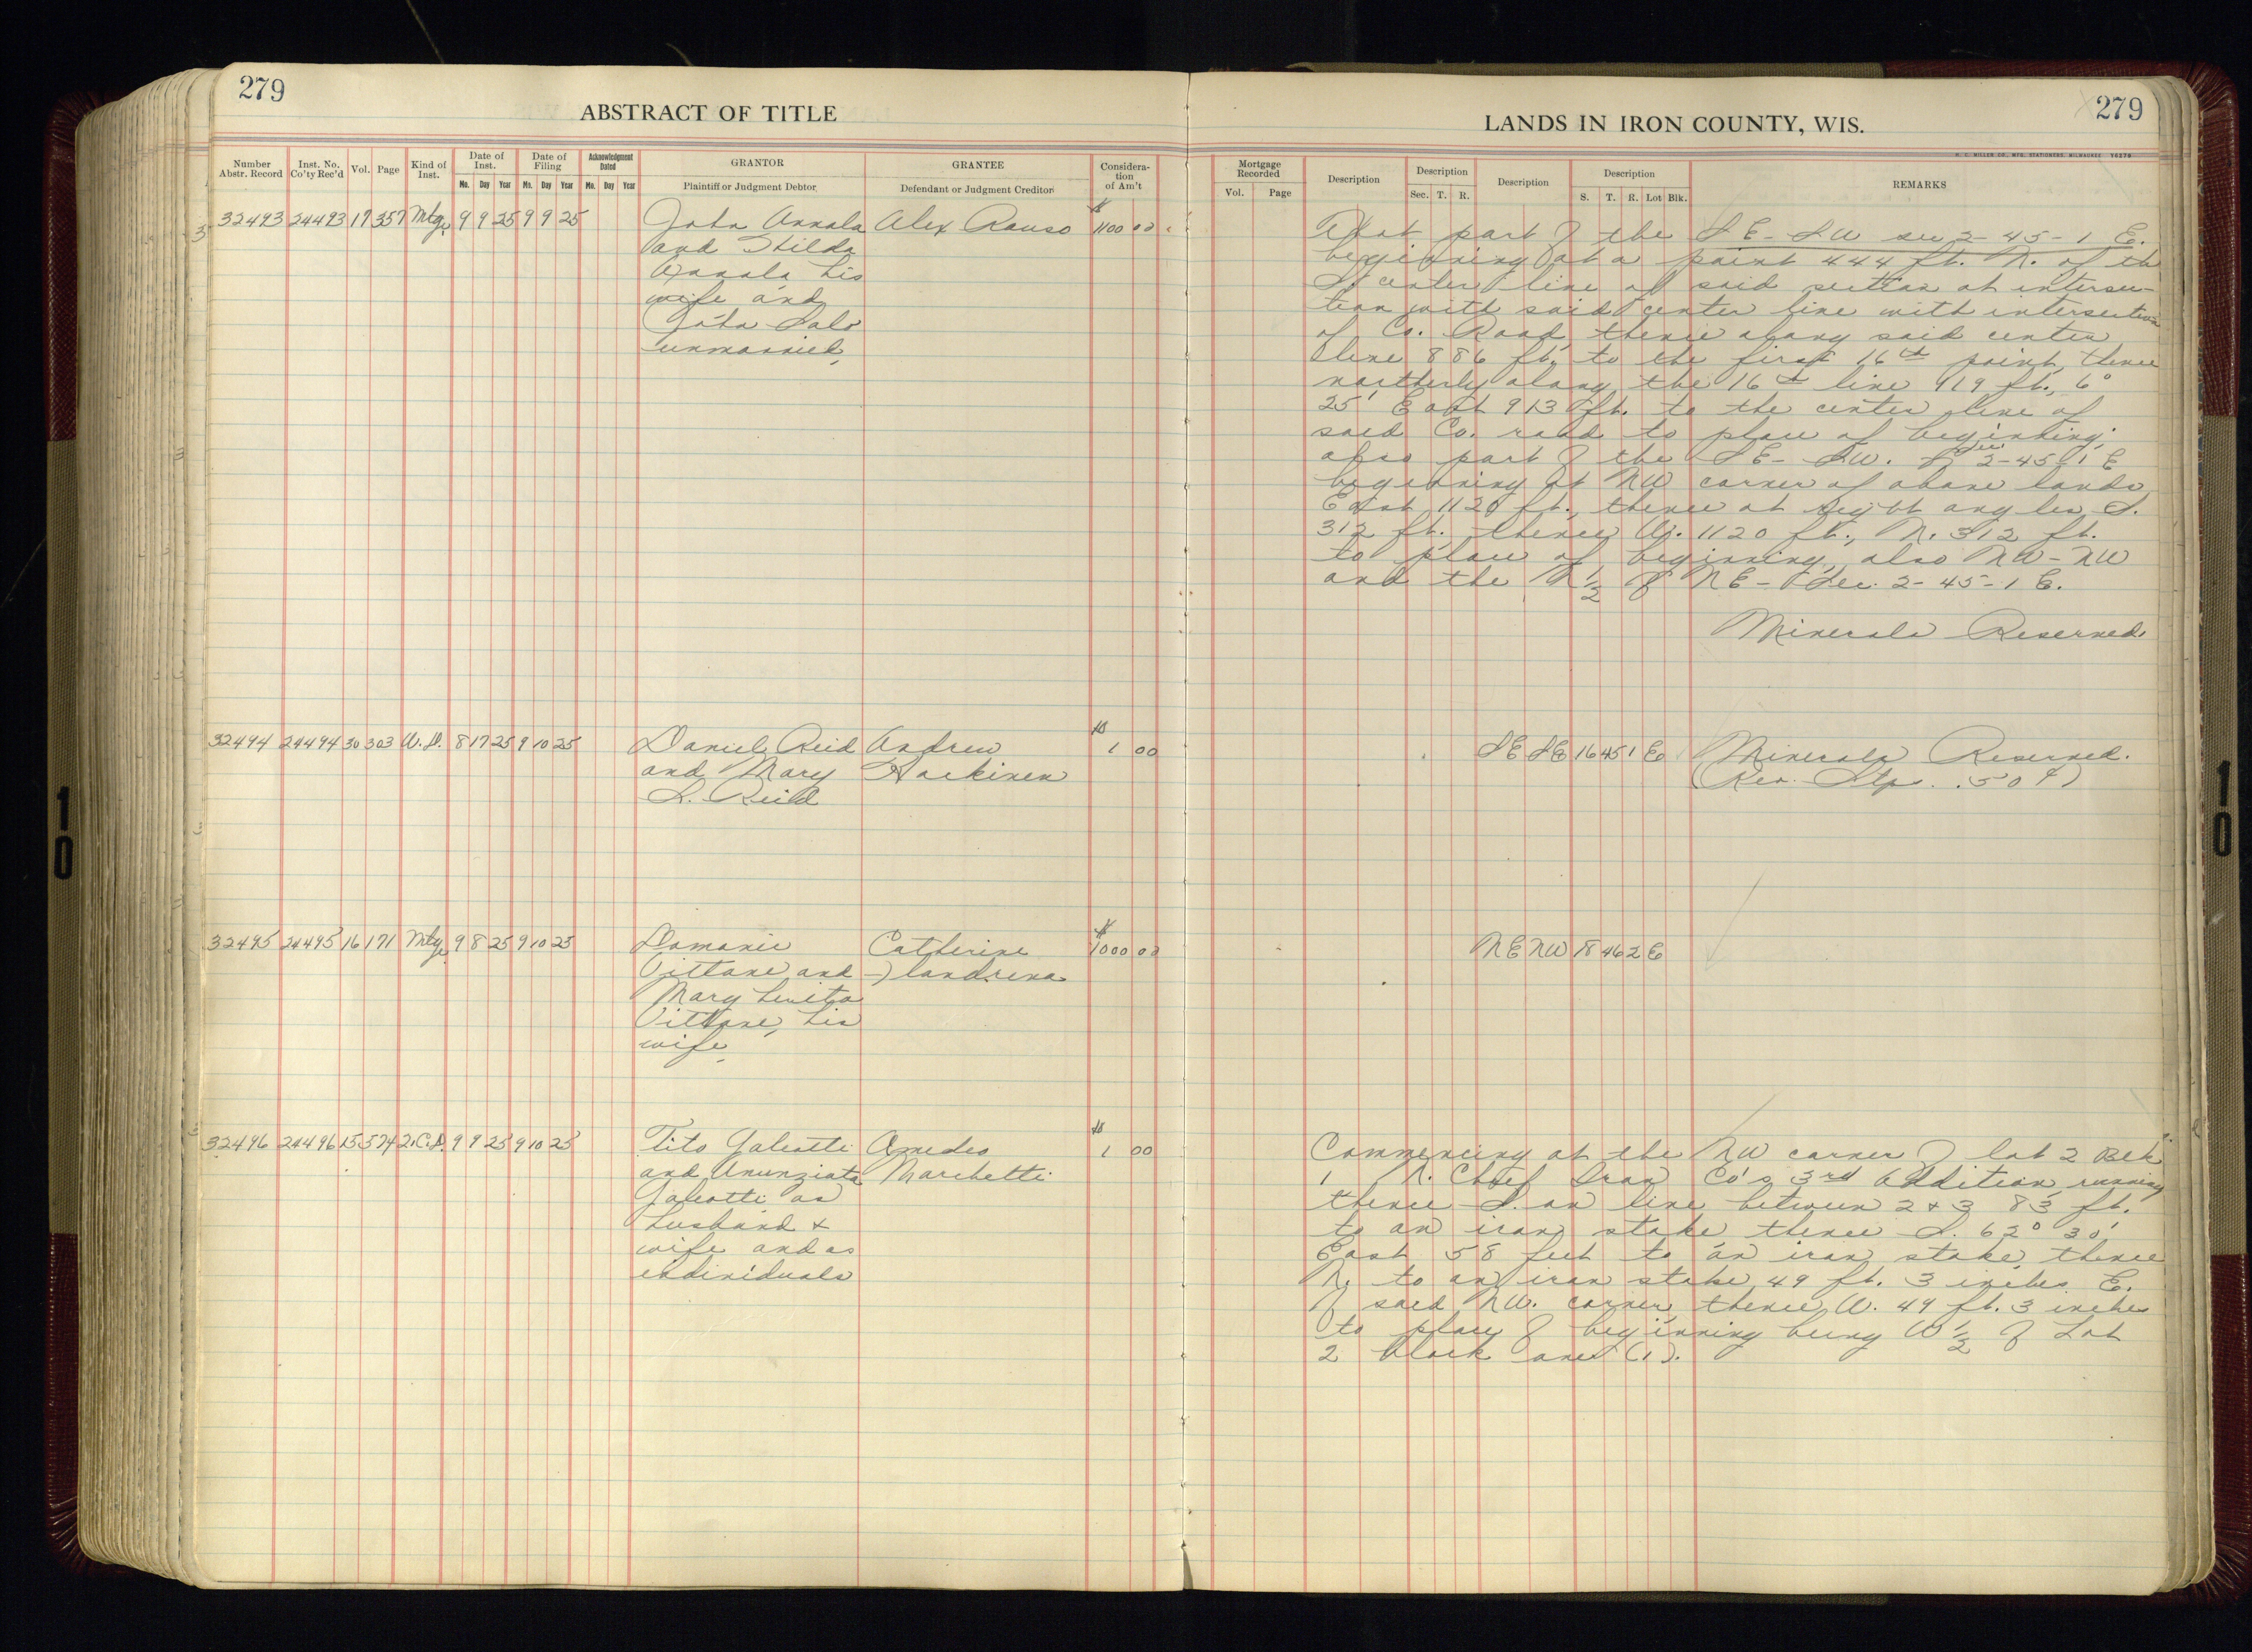 279
ABSTRACT OF TITLE
279
LANDS IN IRON COUNTY, WIS.
H. C. MILLER CO., MFG. STATIONERS, MILWAUKEE
Number Abstr. Record
Inst. No. Co'ty Rec'd
Vol.
Page
Kind of Inst.
Date of Inst.
Mo. Day Year
Date of Filing
Mo. Day Year
Acknowledgment Dated
Mo. Day Year
GRANTOR
Plaintiff or Judgment Debtor
GRANTEE
Defendant or Judgment Creditor
Considera-
tion
of Am't
Mortgage Recorded
Vol. Page
Description
Description
Sec. T. R.
Description
Description
S. T. R. Lot Blk.
REMARKS
32493 24493 17 357 Mtg. 9 9 25 9 9 25
John Annala
and Hilda
Annala his
wife and
John Salo
unmarried,
Alex Rauso
$ 1100 00
That part of the SE-SW sec 2-45-1 E.
beginning at a point 444 ft. N. of th
S center line of said section at intersec-
tion with said center line with intersection
of Co. Road, thence along said center
line 886 ft. to the first 16th point, thence
northerly along the 16th line 919 ft., 6°
25' East 913 ft. to the center line of
said Co. road to place of beginning;
also part of the SE- SW. of Sec 2-45-1 E
beginning at NW corner of above lands
East 1120 ft., thence at right angles S.
312 ft., thence W. 1120 ft., N. 312 ft.
to place of beginning, also NW-NW
and the N 1/2 of NE- Sec. 2-45-1 E.
Minerals Reserved.
32494 24494 30 303 W.D. 8 17 25 9 10 25
Daniel Reid
and Mary
L. Reid
Andrew
Harkinen
$ 1 00
SE SE 16 45 1 E
Minerals Reserved.
(Rev. Stp. .50¢)
32495 24495 16 171 Mtg. 9 8 25 9 10 25
Domanic
Vittone and
Mary Luita
Vittone, his
wife,
Catherine
$ 1000 00
NE NW 18 46 2 E
32496 24496 15 574 2.C.D. 9 9 25 9 10 25
Tito Galeotti
and Anunziata
Galeotti as
husband &
wife and as
individuals
Amedeo
Marchetti
$ 1 00
Commencing at the NW corner of lot 2 Blk
1 N. Chief Iron Co's 3rd Addition, running
thence S. on line between 2 & 3 83 ft.
to an iron stake thence S. 62° 30'
East 58 feet to an iron stake, thence
N. to an iron stake 49 ft. 3 inches E.
of said NW. corner, thence W. 49 ft. 3 inches
to place of beginning being W 1/2 of Lot
2 block one (1).
10
10